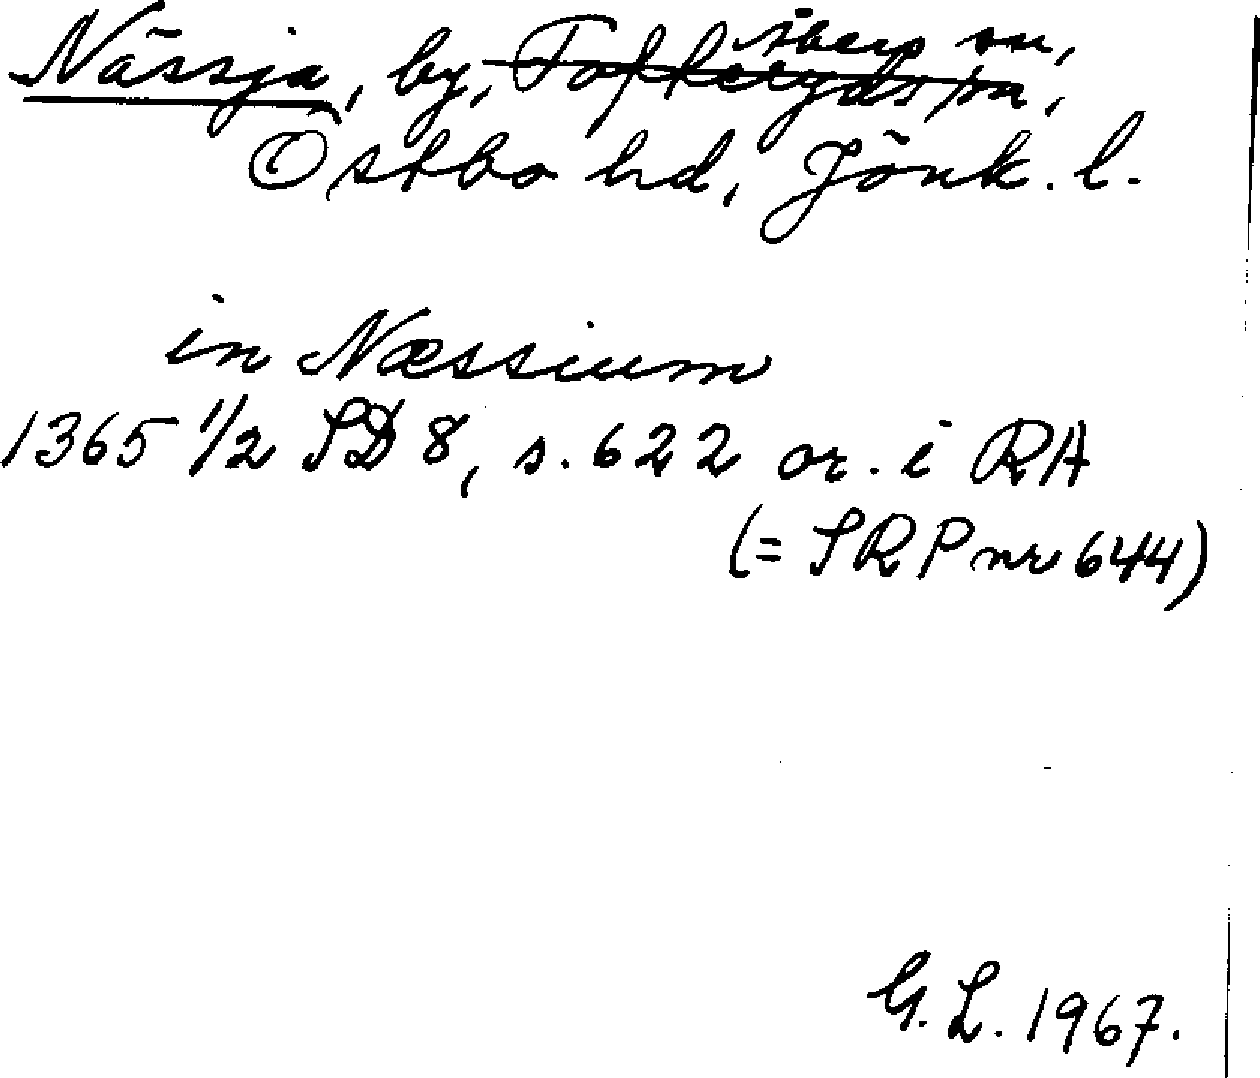 Nässja, by, Tofteryds sn, Åker sn,
Östbo hd, Jönk. l.
in Næssium
1365 1/2 SD 8, s. 622 or. i RA
(= SRP nr 644)
G. L. 1967.